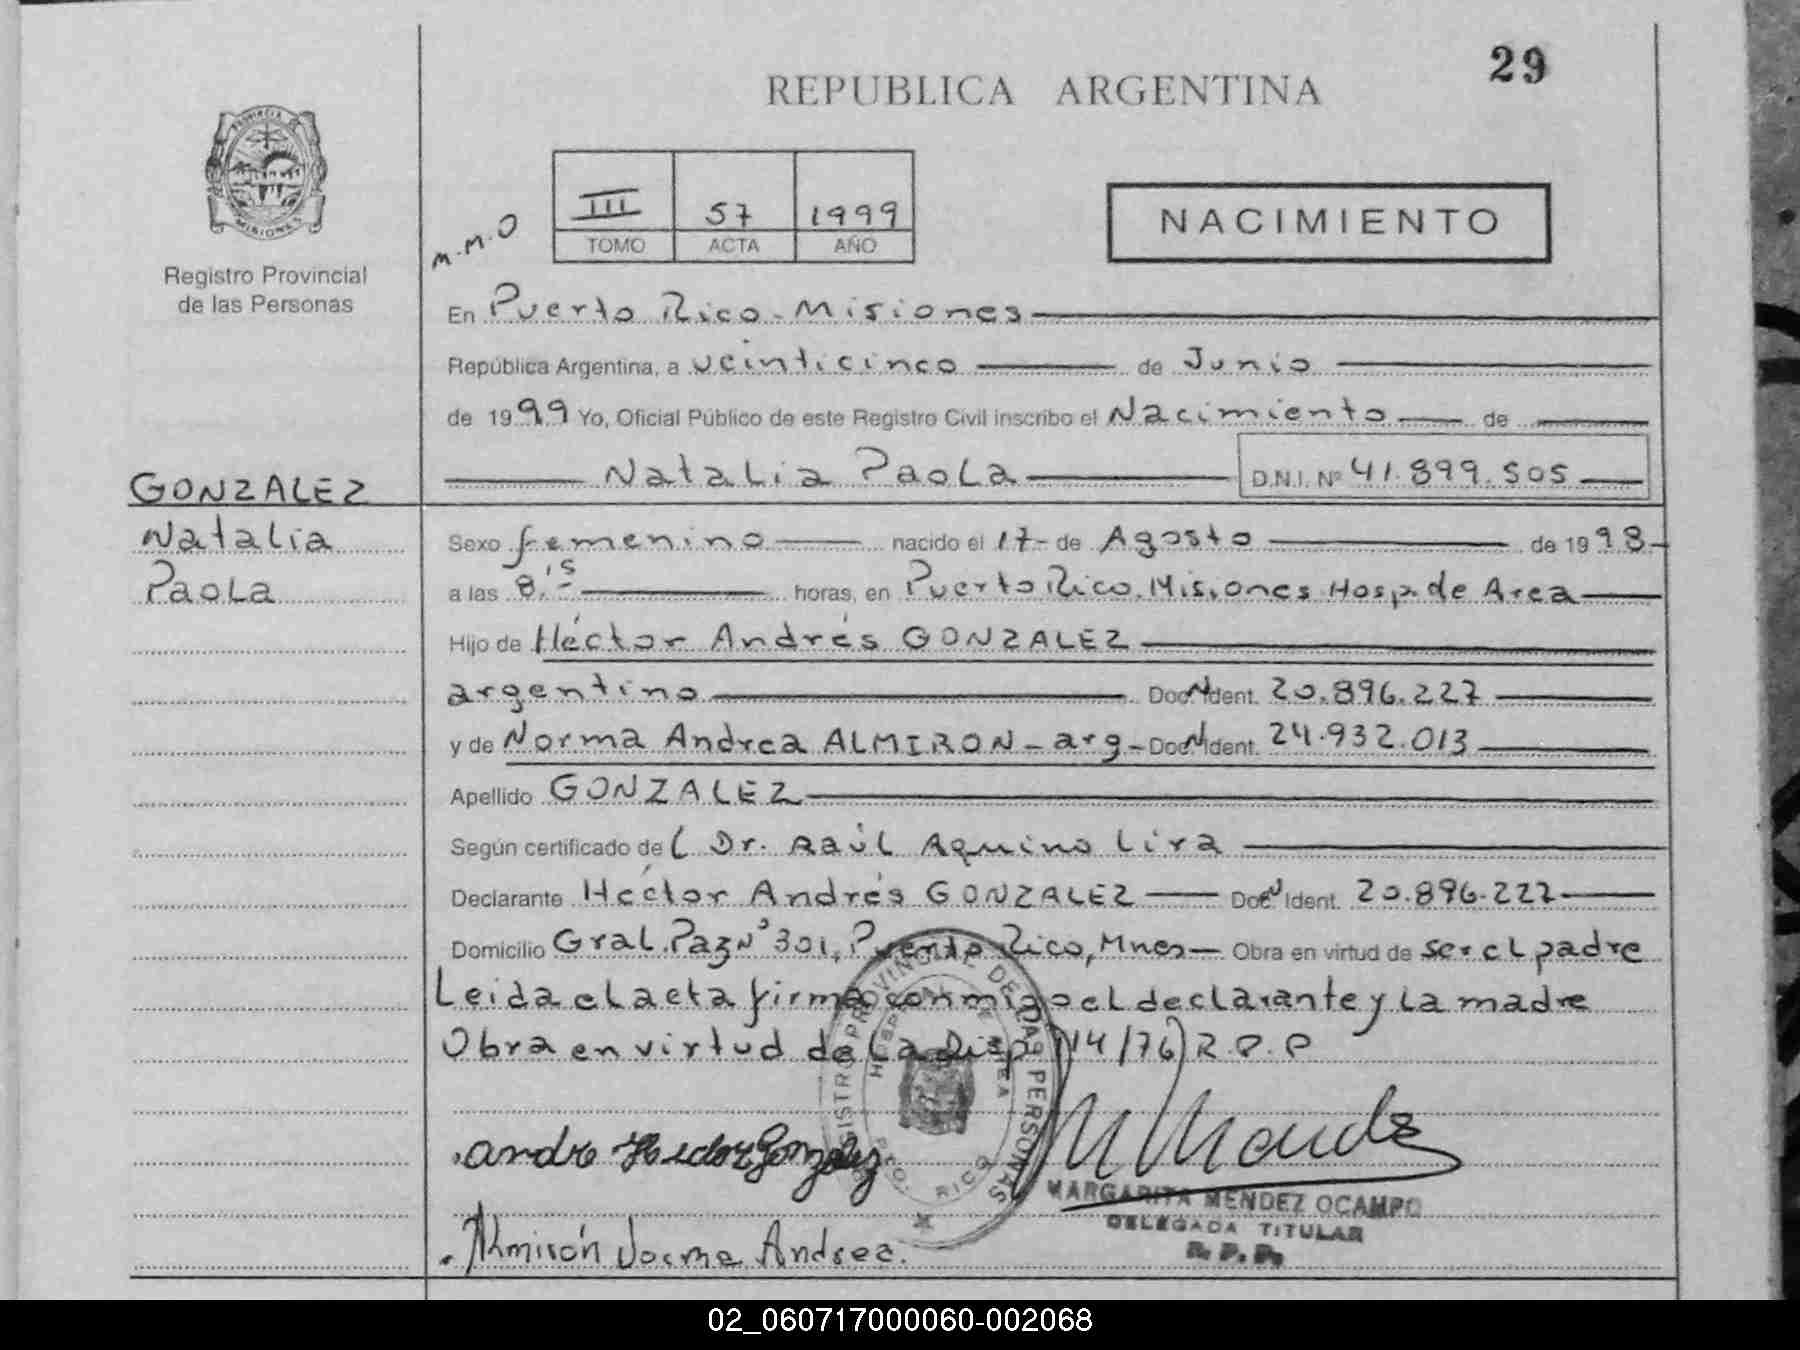 29
REPUBLICA ARGENTINA
PROVINCIA DE
MISIONES
Registro Provincial
de las Personas
M.M.O
III 57 1999
TOMO ACTA AÑO
NACIMIENTO
En Puerto Rico - Misiones
República Argentina, a veinticinco de Junio
de 1999 Yo, Oficial Público de este Registro Civil inscribo el Nacimiento de
Natalia Paola D.N.I. Nº 41.899.505
GONZALEZ
Natalia
Paola
Sexo femenino nacido el 17 de Agosto de 1998
a las 8,15 horas, en Puerto Rico, Misiones Hosp. de Area
Hijo de Héctor Andrés GONZALEZ
argentino Doc N Ident. 20.896.227
y de Norma Andrea ALMIRON - arg - Doc N Ident. 24.932.013
Apellido GONZALEZ
Según certificado del Dr. Raúl Aquino Lira
Declarante Héctor Andrés GONZALEZ Doc N Ident. 20.896.227
Domicilio Gral. Paz Nº 301, Puerto Rico, Mnes Obra en virtud de ser el padre
Leida el acta firma conmigo el declarante y la madre
Obra en virtud de la Disp (14/76) R.P.P
REGISTRO PROVINCIAL DE LAS PERSONAS
HOSPITAL DE AREA
PTO. RICO
Andre Hector Gonzalez
MARGARITA MENDEZ OCAMPO
DELEGADA TITULAR
R. P. P.
Almirón Norma Andrea.
02_060717000060-002068